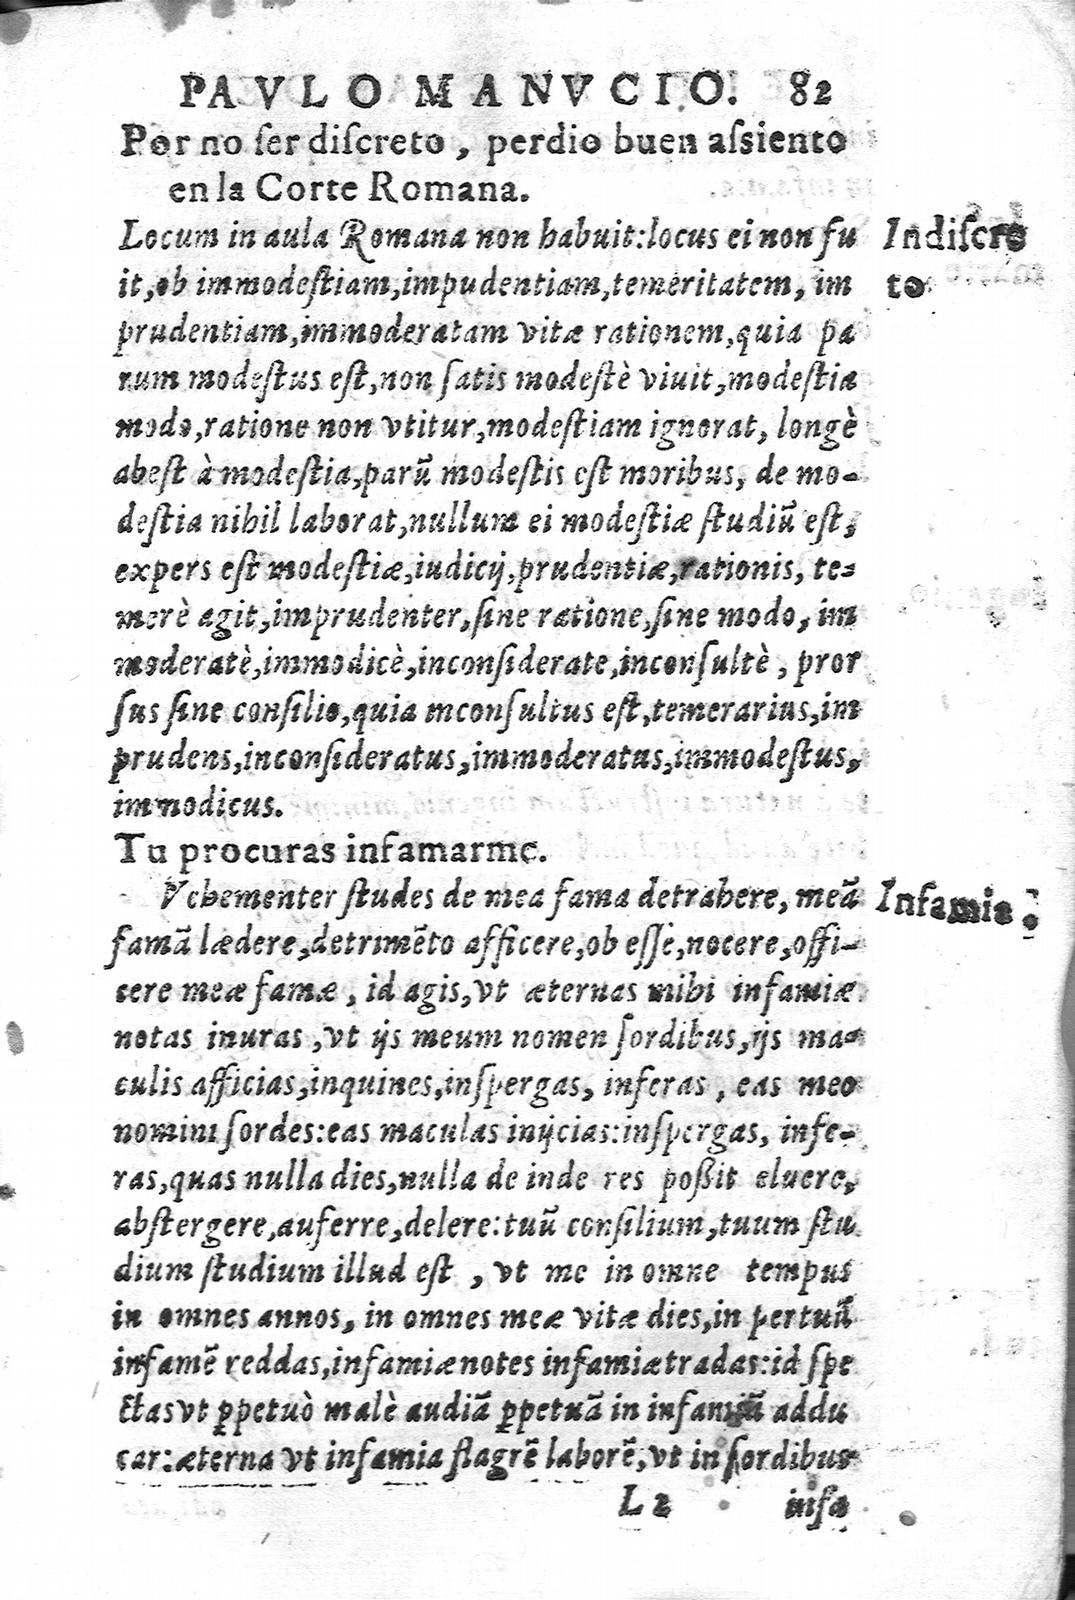 PAVLO MANVCIO. 82
Por no ſer diſcreto, perdio buen aſsiento
en la Corte Romana.
Locum in aula Romana non habuit:locus ei non fu
Indiſcre
it,ob immodeſtiam,impudentiam,temeritatem, im
to
prudentiam,immoderatam vitæ rationem,quia pa
rum modeſtus eſt,non ſatis modeſtè viuit,modeſtia
modo,ratione non vtitur,modeſtiam ignorat, longè
abeſt à modeſtia,parũ modeſtis eſt moribus, de mo-
deſtia nihil laborat,nullum ei modeſtiæ ſtudiũ eſt,
expers eſt modeſtiæ,iudicij,prudentiæ,rationis, te-
merè agit,imprudenter,ſine ratione,ſine modo, im
moderatè,immodicè,inconſiderate,inconſultè, pror
ſus ſine conſilio,quia inconſultus eſt,temerarius,im
prudens,inconſideratus,immoderatus,immodeſtus,
immodicus.
Tu procuras infamarme.
Vehementer ſtudes de mea fama detrahere, meã
Infamia.
famã lædere,detrimẽto afficere,ob eſſe,nocere,offi-
cere meæ famæ, id agis,vt æternas mihi infamiæ
notas inuras,vt ijs meum nomen ſordibus,ijs ma-
culis afficias,inquines,inſpergas, inferas, eas meo
nomini ſordes:eas maculas inijcias:inſpergas, infe-
ras,quas nulla dies,nulla de inde res poßit eluere,
abſtergere,auferre,delere:tuũ conſilium,tuum ſtu
dium ſtudium illud eſt, vt me in omne tempus
in omnes annos, in omnes meæ vitæ dies,in pertuũ
infamẽ reddas,infamiæ notes infamiæ tradas:id ſpe
ctas vt ꝑpetuò malè audiã ꝑpetuã in infamiã addu
car:æterna vt infamia flagrẽ laborẽ,vt in ſordibus
L 2 infa